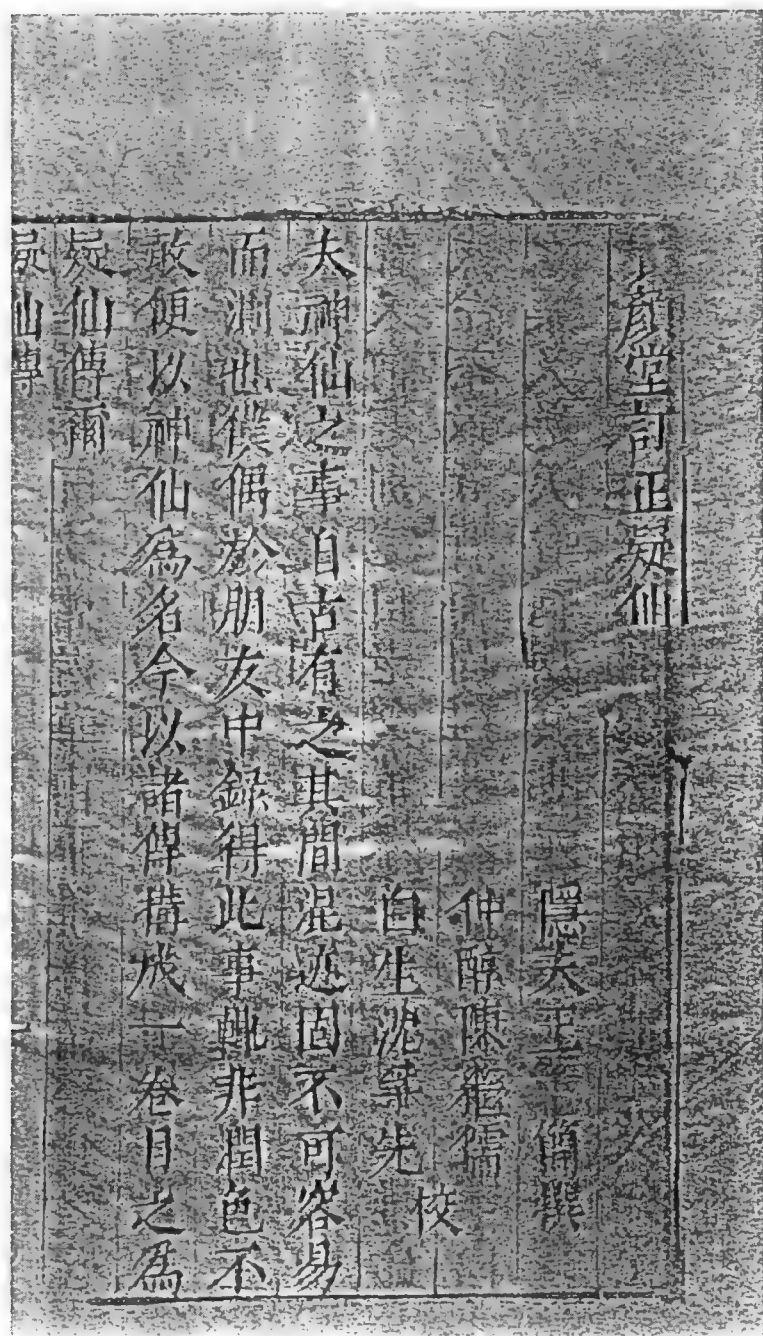 顏堂訂正疑仙
隱夫玉簡撰
仲醇陳繼儒
白生沈孚先
校
夫神仙之事自古有之其間混迹固不可容易
而測也僕偶於朋友中錄得此事輒非潤色不
敢便以神仙爲名今以諸傳構成一卷目之爲
疑仙傳爾
疑仙傳